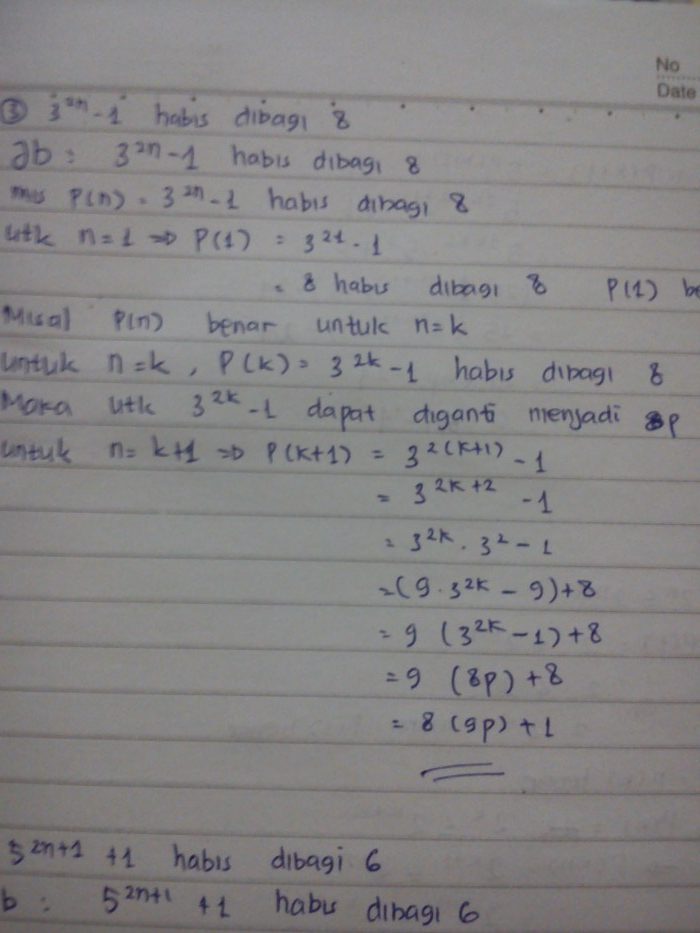 No
Date
③ 3²ⁿ - 1 habis dibagi 8
Jb : 3²ⁿ - 1 habis dibagi 8
mis P(n) = 3²ⁿ - 1 habis dibagi 8
utk n = 1 => P(1) = 3²¹ - 1
= 8 habis dibagi 8 P(1) be
Misal P(n) benar untuk n=k
untuk n=k, P(k) = 3²ᵏ - 1 habis dibagi 8
Maka utk 3²ᵏ - 1 dapat diganti menjadi 8p
untuk n= k+1 => P(k+1) = 3²⁽ᵏ⁺¹⁾ - 1
= 3²ᵏ⁺² - 1
= 3²ᵏ . 3² - 1
=(9 . 3²ᵏ - 9)+8
= 9 (3²ᵏ - 1)+8
= 9 (8p) + 8
= 8 (9p) + 1
5²ⁿ⁺¹ + 1 habis dibagi 6
b : 5²ⁿ⁺¹ + 1 habis dibagi 6